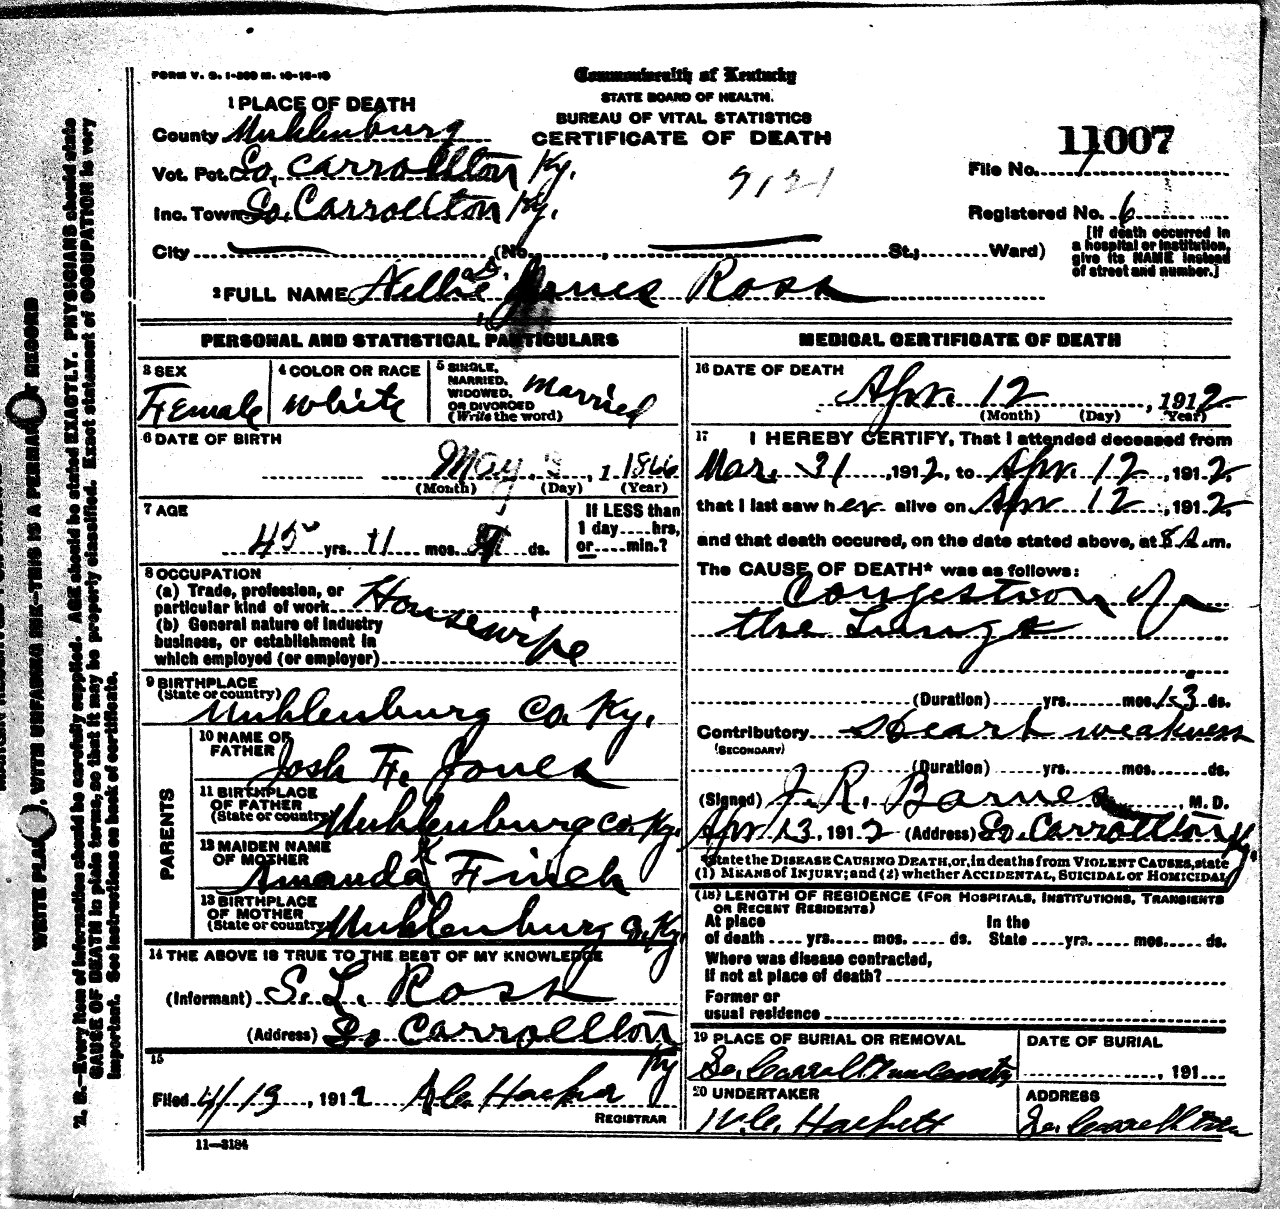 FORM V. S. 1-200 M. 10-16-10
Commonwealth of Kentucky
STATE BOARD OF HEALTH.
BUREAU OF VITAL STATISTICS
CERTIFICATE OF DEATH
11007
1 PLACE OF DEATH
County Muhlenburg
Vot. Pct. So. Carrollton Ky.
Inc. Town So. Carrollton Ky.
City (No. , St.; Ward)
File No. 1
Registered No. 6
[If death occurred in a hospital or institution, give its NAME instead of street and number.]
2 FULL NAME Nellie Jones Ross
PERSONAL AND STATISTICAL PARTICULARS
3 SEX Female
4 COLOR OR RACE White
5 SINGLE, MARRIED, WIDOWED, OR DIVORCED (Write the word) Married
6 DATE OF BIRTH
May 3, 1 1866
(Month) (Day) (Year)
7 AGE
45 yrs. 11 mos. 9 ds.
If LESS than 1 day hrs, or min.?
8 OCCUPATION
(a) Trade, profession, or particular kind of work Housewife
(b) General nature of industry business, or establishment in which employed (or employer)
9 BIRTHPLACE
(State or country)
Muhlenburg Co. Ky.
PARENTS
10 NAME OF FATHER Josh F. Jones
11 BIRTHPLACE OF FATHER (State or country) Muhlenburg Co. Ky.
12 MAIDEN NAME OF MOTHER Amanda K Finch
13 BIRTHPLACE OF MOTHER (State or country) Muhlenburg Co. Ky.
14 THE ABOVE IS TRUE TO THE BEST OF MY KNOWLEDGE
(Informant) S. L. Ross
(Address) So. Carrollton Ky
15
Filed 4/13, 1912
REGISTRAR
11—3184
MEDICAL CERTIFICATE OF DEATH
16 DATE OF DEATH
Apr. 12, 1912
(Month) (Day) (Year)
17 I HEREBY CERTIFY, That I attended deceased from
Mar. 31, 1912, to Apr. 12, 1912,
that I last saw her alive on Apr 12, 1912,
and that death occured, on the date stated above, at 8 A.m.
The CAUSE OF DEATH* was as follows:
Congestion of
the Lungs
(Duration) yrs. mos. 13 ds.
Contributory Heart weakness
(SECONDARY)
(Duration) yrs. mos. ds.
(Signed) J. R. Barnes, M. D.
Apr 13, 1912 (Address) So. Carrollton Ky.
*State the DISEASE CAUSING DEATH, or, in deaths from VIOLENT CAUSES, state
(1) MEANS of INJURY; and (2) whether ACCIDENTAL, SUICIDAL or HOMICIDAL
(18) LENGTH OF RESIDENCE (FOR HOSPITALS, INSTITUTIONS, TRANSIENTS
OR RECENT RESIDENTS)
At place of death yrs. mos. ds. In the State yrs. mos. ds.
Where was disease contracted,
If not at place of death?
Former or
usual residence
19 PLACE OF BURIAL OR REMOVAL
So. Carrollton
DATE OF BURIAL
, 191
20 UNDERTAKER
W. C. Hackett
ADDRESS
So. Carrollton
N. B.—Every item of information should be carefully supplied. AGE should be stated EXACTLY. PHYSICIANS should state
CAUSE OF DEATH in plain terms, so that it may be properly classified. Exact statement of OCCUPATION is very
important. See instructions on back of certificate.
WRITE PLAINLY, WITH UNFADING INK—THIS IS A PERMANENT RECORD